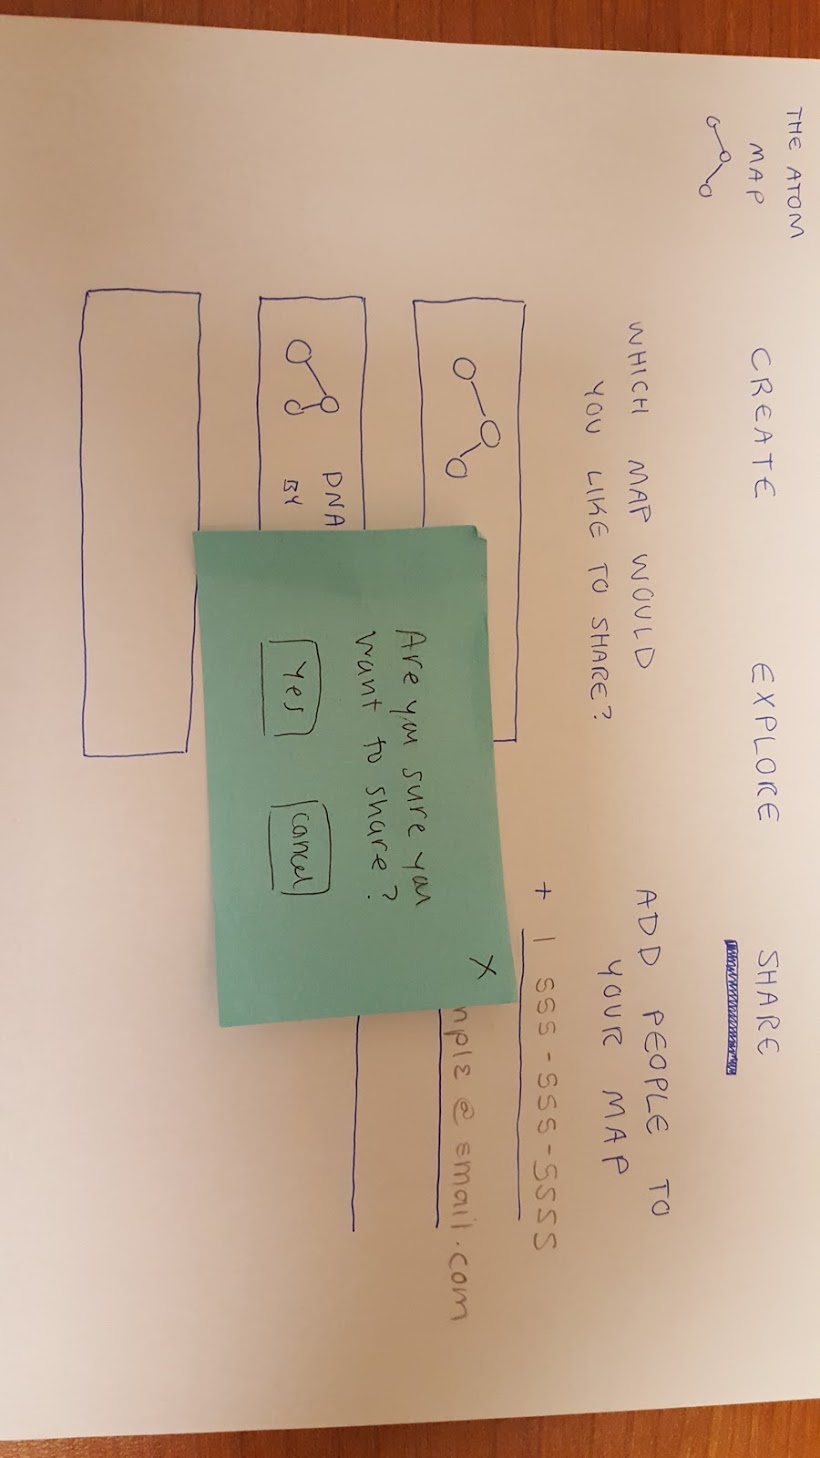 THE ATOM
MAP
CREATE
EXPLORE
SHARE
WHICH MAP WOULD
YOU LIKE TO SHARE?
DNA
BY
ADD PEOPLE TO
YOUR MAP
+ 1 555-555-5555
mple @ email.com
X
Are you sure you
want to share?
Yes
Cancel